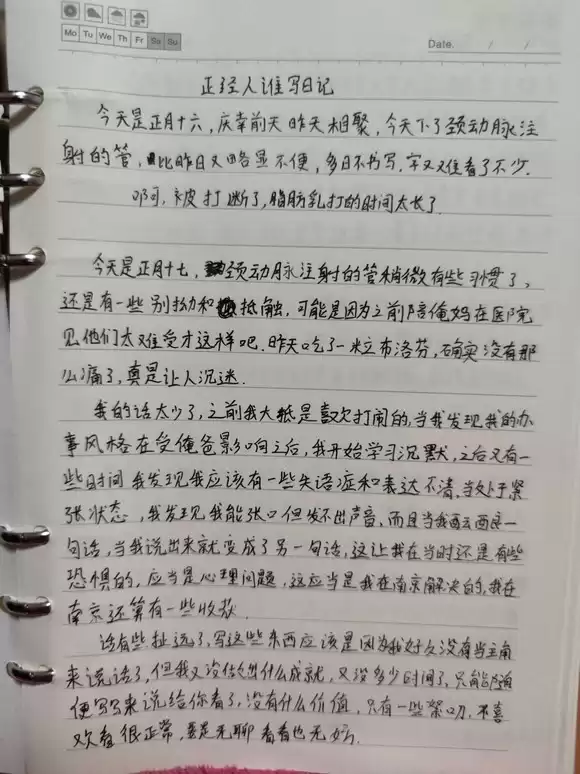 Mo Tu We Th Fr Sa Su
Date. / /
正经人谁写日记
今天是正月十六,庆幸前天昨天相聚,今天下了颈动脉注
射的管,比昨日又略显不便,多日不书写,字又难看了不少.
啊,被打断了,脂肪乳打的时间太长了.
今天是正月十七,颈动脉注射的管稍微有些习惯了,
还是有一些别扭和抵触,可能是因为之前陪俺妈在医院
见他们太难受才这样吧.昨天吃了一粒布洛芬,确实没有那
么痛了,真是让人沉迷.
我的话太少了,之前我大抵是喜欢打闹的,当我发现我的办
事风格在受俺爸影响之后,我开始学习沉默,之后又有一
些时间我发现我应该有一些失语症和表达不清,当处于紧
张状态,我发现我能张口但发不出声音,而且当我酝酿一
句话,当我说出来就变成了另一句话,这让我在当时还是有些
恐惧的,应当是心理问题,这应当是我在南京解决的,我在
南京还算有一些收获.
话有些扯远了,写这些东西应该是因为我好久没有当主角
来说话了,但我又没做出什么成就,又没多少时间了,只能随
便写写来说给你看了,没有什么价值,只有一些絮叨,不喜
欢看很正常,要是无聊看看也无妨.